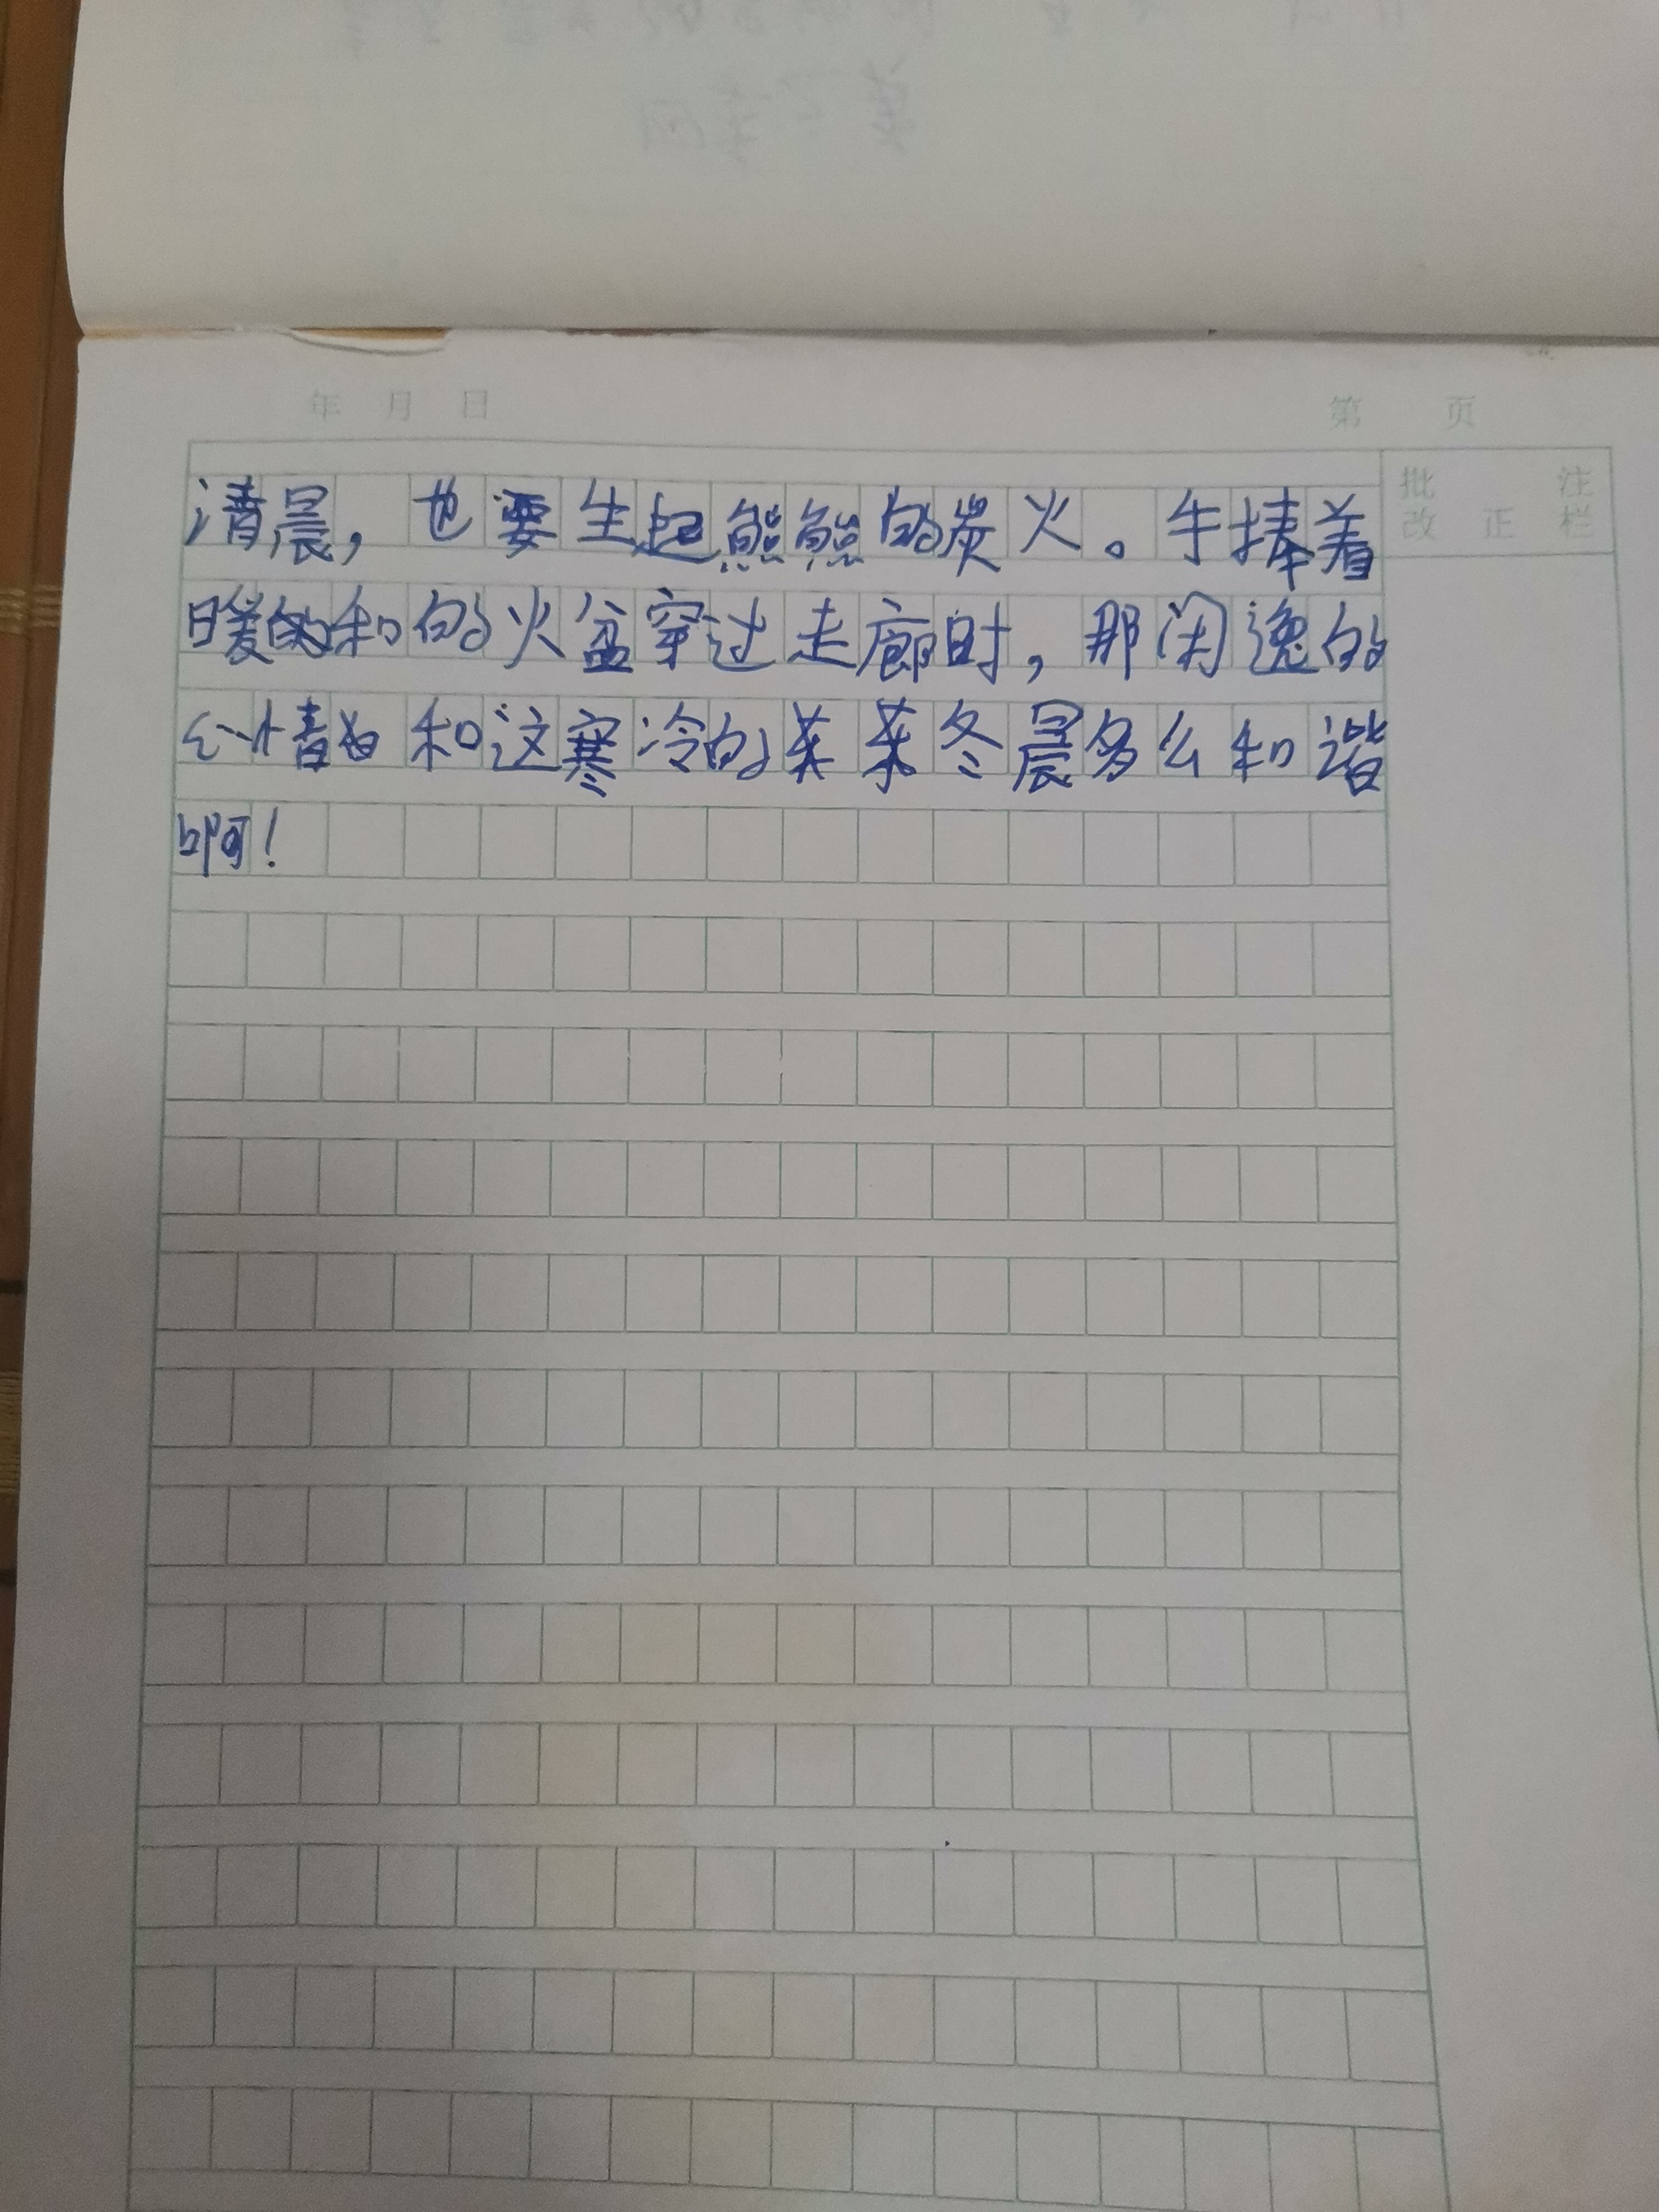 年 月 日 第 页
批 注
改 正 栏
清晨，也要生起熊熊的炭火。手捧着
暖和的火盆穿过走廊时，那闲逸的
心情和这寒冷的冬晨多么和谐
啊！